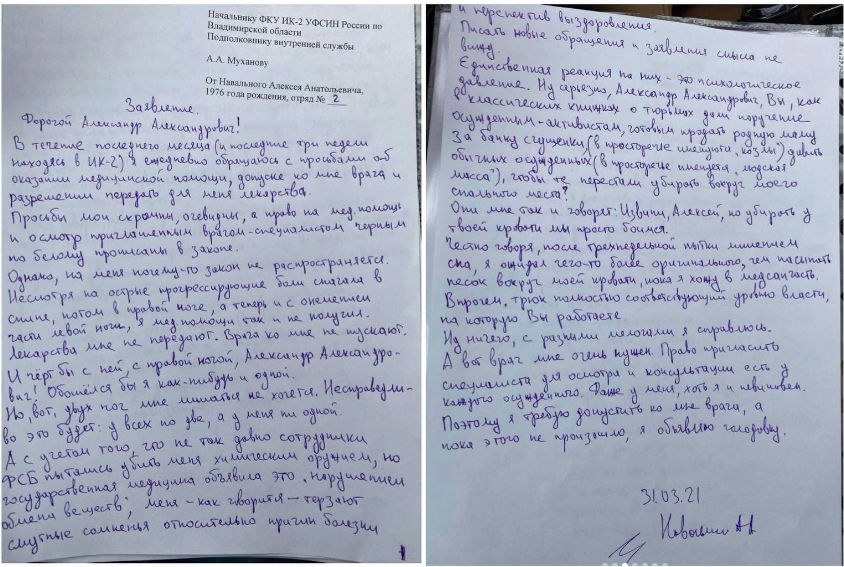 Начальнику ФКУ ИК-2 УФСИН России по
Владимирской области
Подполковнику внутренней службы
А.А. Муханову
От Навального Алексея Анатольевича,
1976 года рождения, отряд № 2
Заявление.
Дорогой Александр Александрович!
В течение последнего месяца (и последние три недели
находясь в ИК-2) я ежедневно обращаюсь с просьбами об
оказании медицинской помощи, допуске ко мне врача и
разрешении передать для меня лекарства.
Просьбы мои скромны, очевидны, а право на мед. помощь
и осмотр приглашенным врачом-специалистом черным
по белому прописаны в законе.
Однако, на меня почему-то закон не распространяется.
Несмотря на острые прогрессирующие боли сначала в
спине, потом в правой ноге, а теперь и с онемением
части левой ноги, я мед помощи так и не получил.
Лекарства мне не передают. Врача ко мне не пускают.
И чёрт бы с ней, с правой ногой, Александр Александро-
вич! Обошёлся бы я как-нибудь и одной.
Но, вот, двух ног мне лишаться не хочется. Несправедли-
во это будет: у всех по две, а у меня ни одной.
А с учетом того, что не так давно сотрудники
ФСБ пытались убить меня химическим оружием, но
государственная медицина объявила это „нарушением
обмена веществ", меня - как говорится - терзают
смутные сомненья относительно причин болезни
1
и перспектив выздоровления.
Писать новые обращения и заявления смысла не
вижу.
Единственная реакция на них - это психологическое
давление. Ну серьезно, Александр Александрович, Вы, как
в классических книжках о тюрьмах дали поручение
осужденным-активистам, готовым продать родную маму
за банку сгущенки (в просторечие именуются „козлы") давить
обычных осужденных (в просторечие именуется „людская
масса"), чтобы те перестали убирать вокруг моего
спального места?
Они мне так и говорят: Извини, Алексей, но убирать у
твоей кровати мы просто боимся.
Честно говоря, после трехнедельной пытки лишением
сна, я ожидал чего-то более оригинального, чем насыпать
песок вокруг моей кровати, пока я хожу в медсанчасть.
Впрочем, трюк полностью соответствующий уровню власти,
на которую Вы работаете.
Ну ничего, с разными мелочами я справлюсь.
А вот врач мне очень нужен. Право пригласить
специалиста для осмотра и консультации есть у
каждого осужденного. Даже у меня, хоть я и невиновен.
Поэтому я требую допустить ко мне врача, а
пока этого не произошло, я объявляю голодовку.
31.03.21
Навальный А А